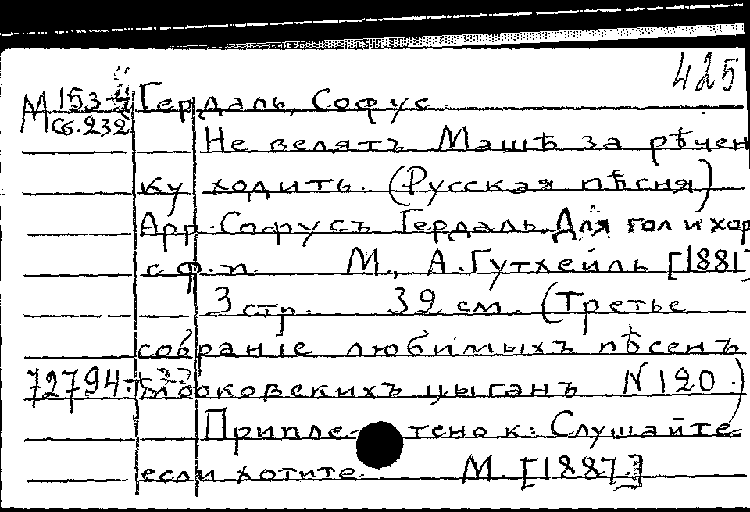 425
М 153-4 Гердаль, Софус
Сб. 232
Не велятъ Машѣ за рѣчен
ку ходить. (Русская пѣсня)
Арр. Софусъ Гердаль. Для гол и хор
с ф.п. М., А. Гутхейль [1881]
3 стр. 39 см. (Третье
собраніе любимыхъ пѣсенъ
72794- московскихъ цыганъ N 120.)
Приплетено к: Слушайте
если хотите. М. [1887.]